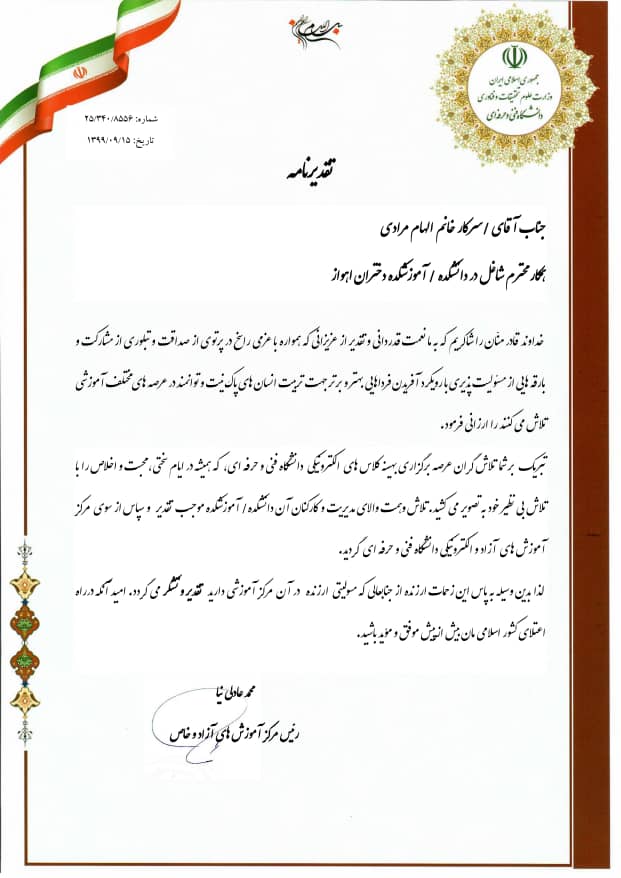 بسم الله الرحمن الرحیم
جمهوری اسلامی ایران
وزارت علوم تحقیقات و فناوری
دانشگاه فنی و حرفه ای
شماره: ۲۵/۳۴۰/۸۵۵۶
تاریخ: ۱۳۹۹/۰۹/۱۵
تقدیرنامه
جناب آقای /سرکار خانم الهام مرادی
همکار محترم شاغل در دانشکده / آموزشکده دختران اهواز
خداوند قادر منان را شاکریم که به ما نعمت قدردانی و تقدیر از عزیزانی که همواره با عزمی راسخ در پرتوی از صداقت و تبلوری از مشارکت و
بارقه هایی از مسئولیت پذیری با رویکرد آفریدن فرداهایی بهتر و برتر جهت تربیت انسان های پاک نیت و توانمند در عرصه های مختلف آموزشی
تلاش می کنند را ارزانی فرمود.
تبریک بر شما تلاش گران عرصه برگزاری بهینه کلاس های الکترونیکی دانشگاه فنی و حرفه ای، که همیشه در ایام سختی، محبت و اخلاص را با
تلاش بی نظیر خود به تصویر می کشید. تلاش و همت والای مدیریت و کارکنان آن دانشکده/ آموزشکده موجب تقدیر و سپاس از سوی مرکز
آموزش های آزاد و الکترونیکی دانشگاه فنی و حرفه ای گردید.
لذا بدین وسیله به پاس این زحمات ارزنده از جنابعالی که مسولیتی ارزنده در آن مرکز آموزشی دارید تقدیر و تشکر می گردد. امید آنکه در راه
اعتلای کشور اسلامی مان بیش از پیش موفق و مؤید باشید.
محمد عادلی نیا
رئیس مرکز آموزش های آزاد و خاص